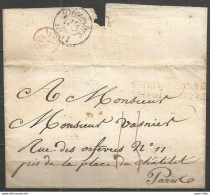 A Monsieur
Monsieur Vasnier
Rue des orfèvres N° 11
près de la place du Châtelet
Paris